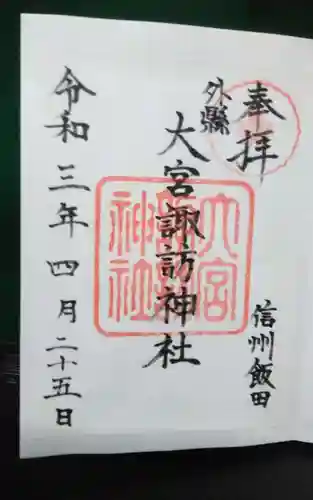 奉拝
信州飯田
外縣
大宮諏訪神社
大宮諏訪神社
令和三年四月二十五日